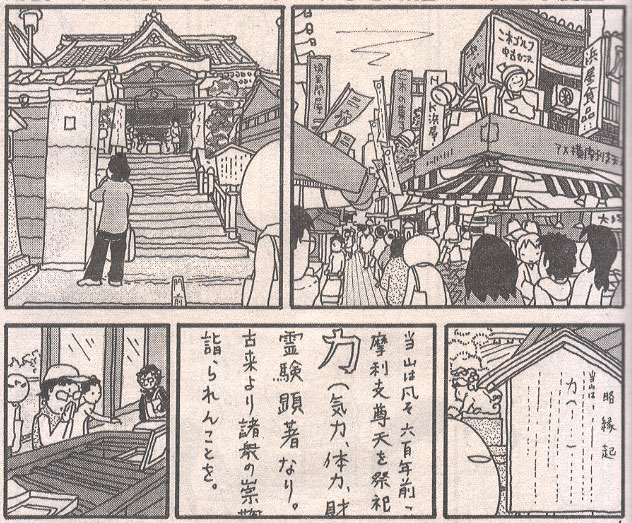 二木ゴルフ
浜屋食品
二木の菓子
浜屋
アメ横
縁起
当山は、
力(ー、)
当山は凡そ六百年前、
摩利支尊天を祭祀
力(気力、体力、財
霊験顕著なり。
古来より諸衆の崇
詣られんことを。